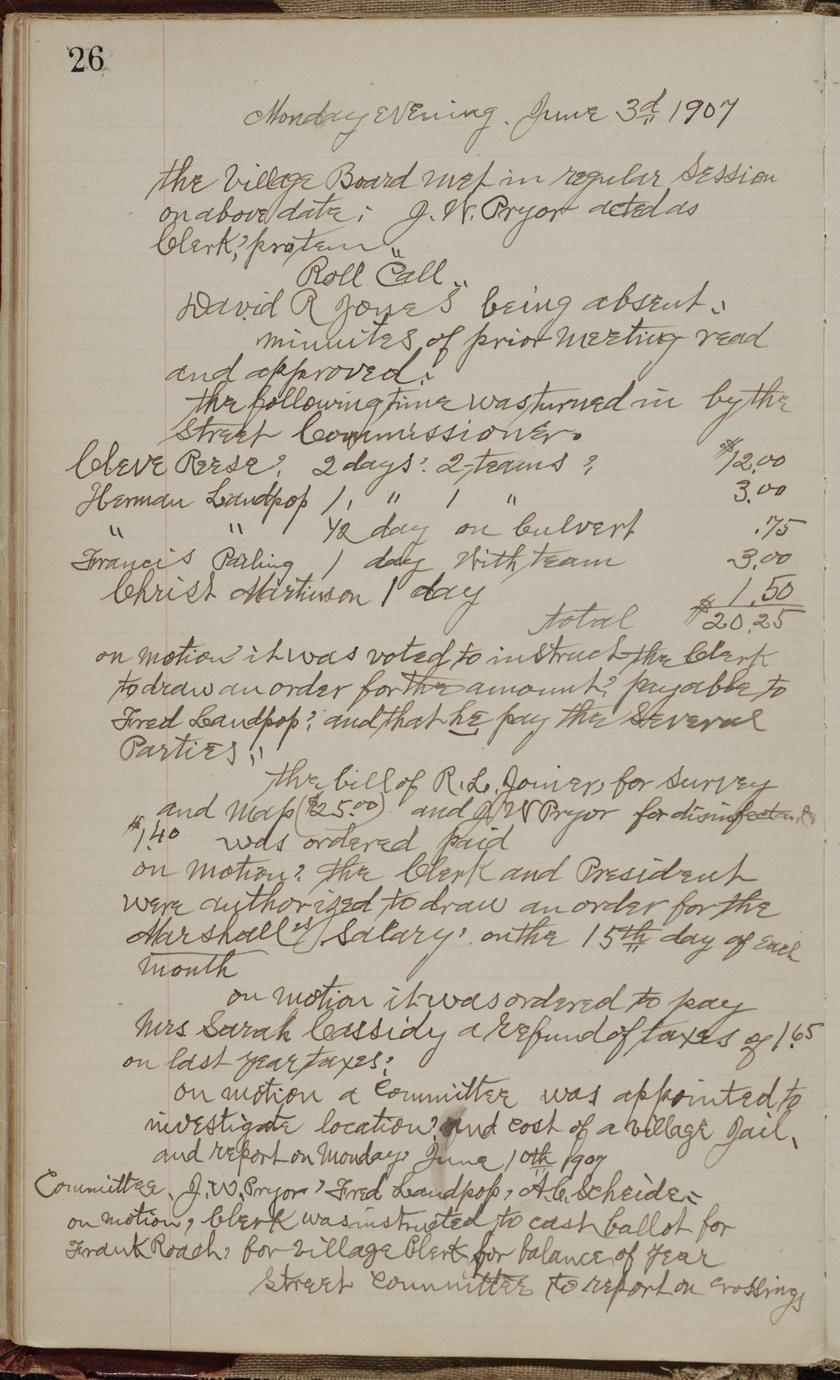 26
Monday evening. June 3d 1907
the Village Board met in regular Session
on above date; J. W. Pryor acted as
Clerk, protem "
Roll Call "
David R Jones being absent.
minuites of prior meeting read
and approved.
the following time was turned in by the
Street Commissioner.
Cleve Reese, 2 days: 2-teams, $12.00
Herman Landpop 1, " 1 " 3.00
" " 1/2 day on Culvert .75
Francis Parling 1 day With team 3.00
Christ Martinson 1 day 1.50
total $20.25
on motion it was voted to instruct the Clerk
to draw an order for the amount, payable to
Fred Landpop, and that he pay the several
Parties,
the bill of R. L. Joiner, for Survey
and Map ($25.00) and J W Pryor for disinfectants
$1.40 was ordered paid
on motion, the Clerk and President
were authorized to draw an order for the
Marshall's Salary, on the 15th day of each
month
on motion it was ordered to pay
Mrs Sarah Cassidy a refund of taxes of 1.65
on last year taxes,
on motion a Committee was appointed to
investigate location, and cost of a village Jail,
and report on Monday, June 10th 1907
Committee, J. W. Pryor, Fred Landpop, A. C. Scheide.
on motion, Clerk was instructed to cast ballot for
Frank Roach, for Village Clerk for balance of year
Street Committee to report on crossings